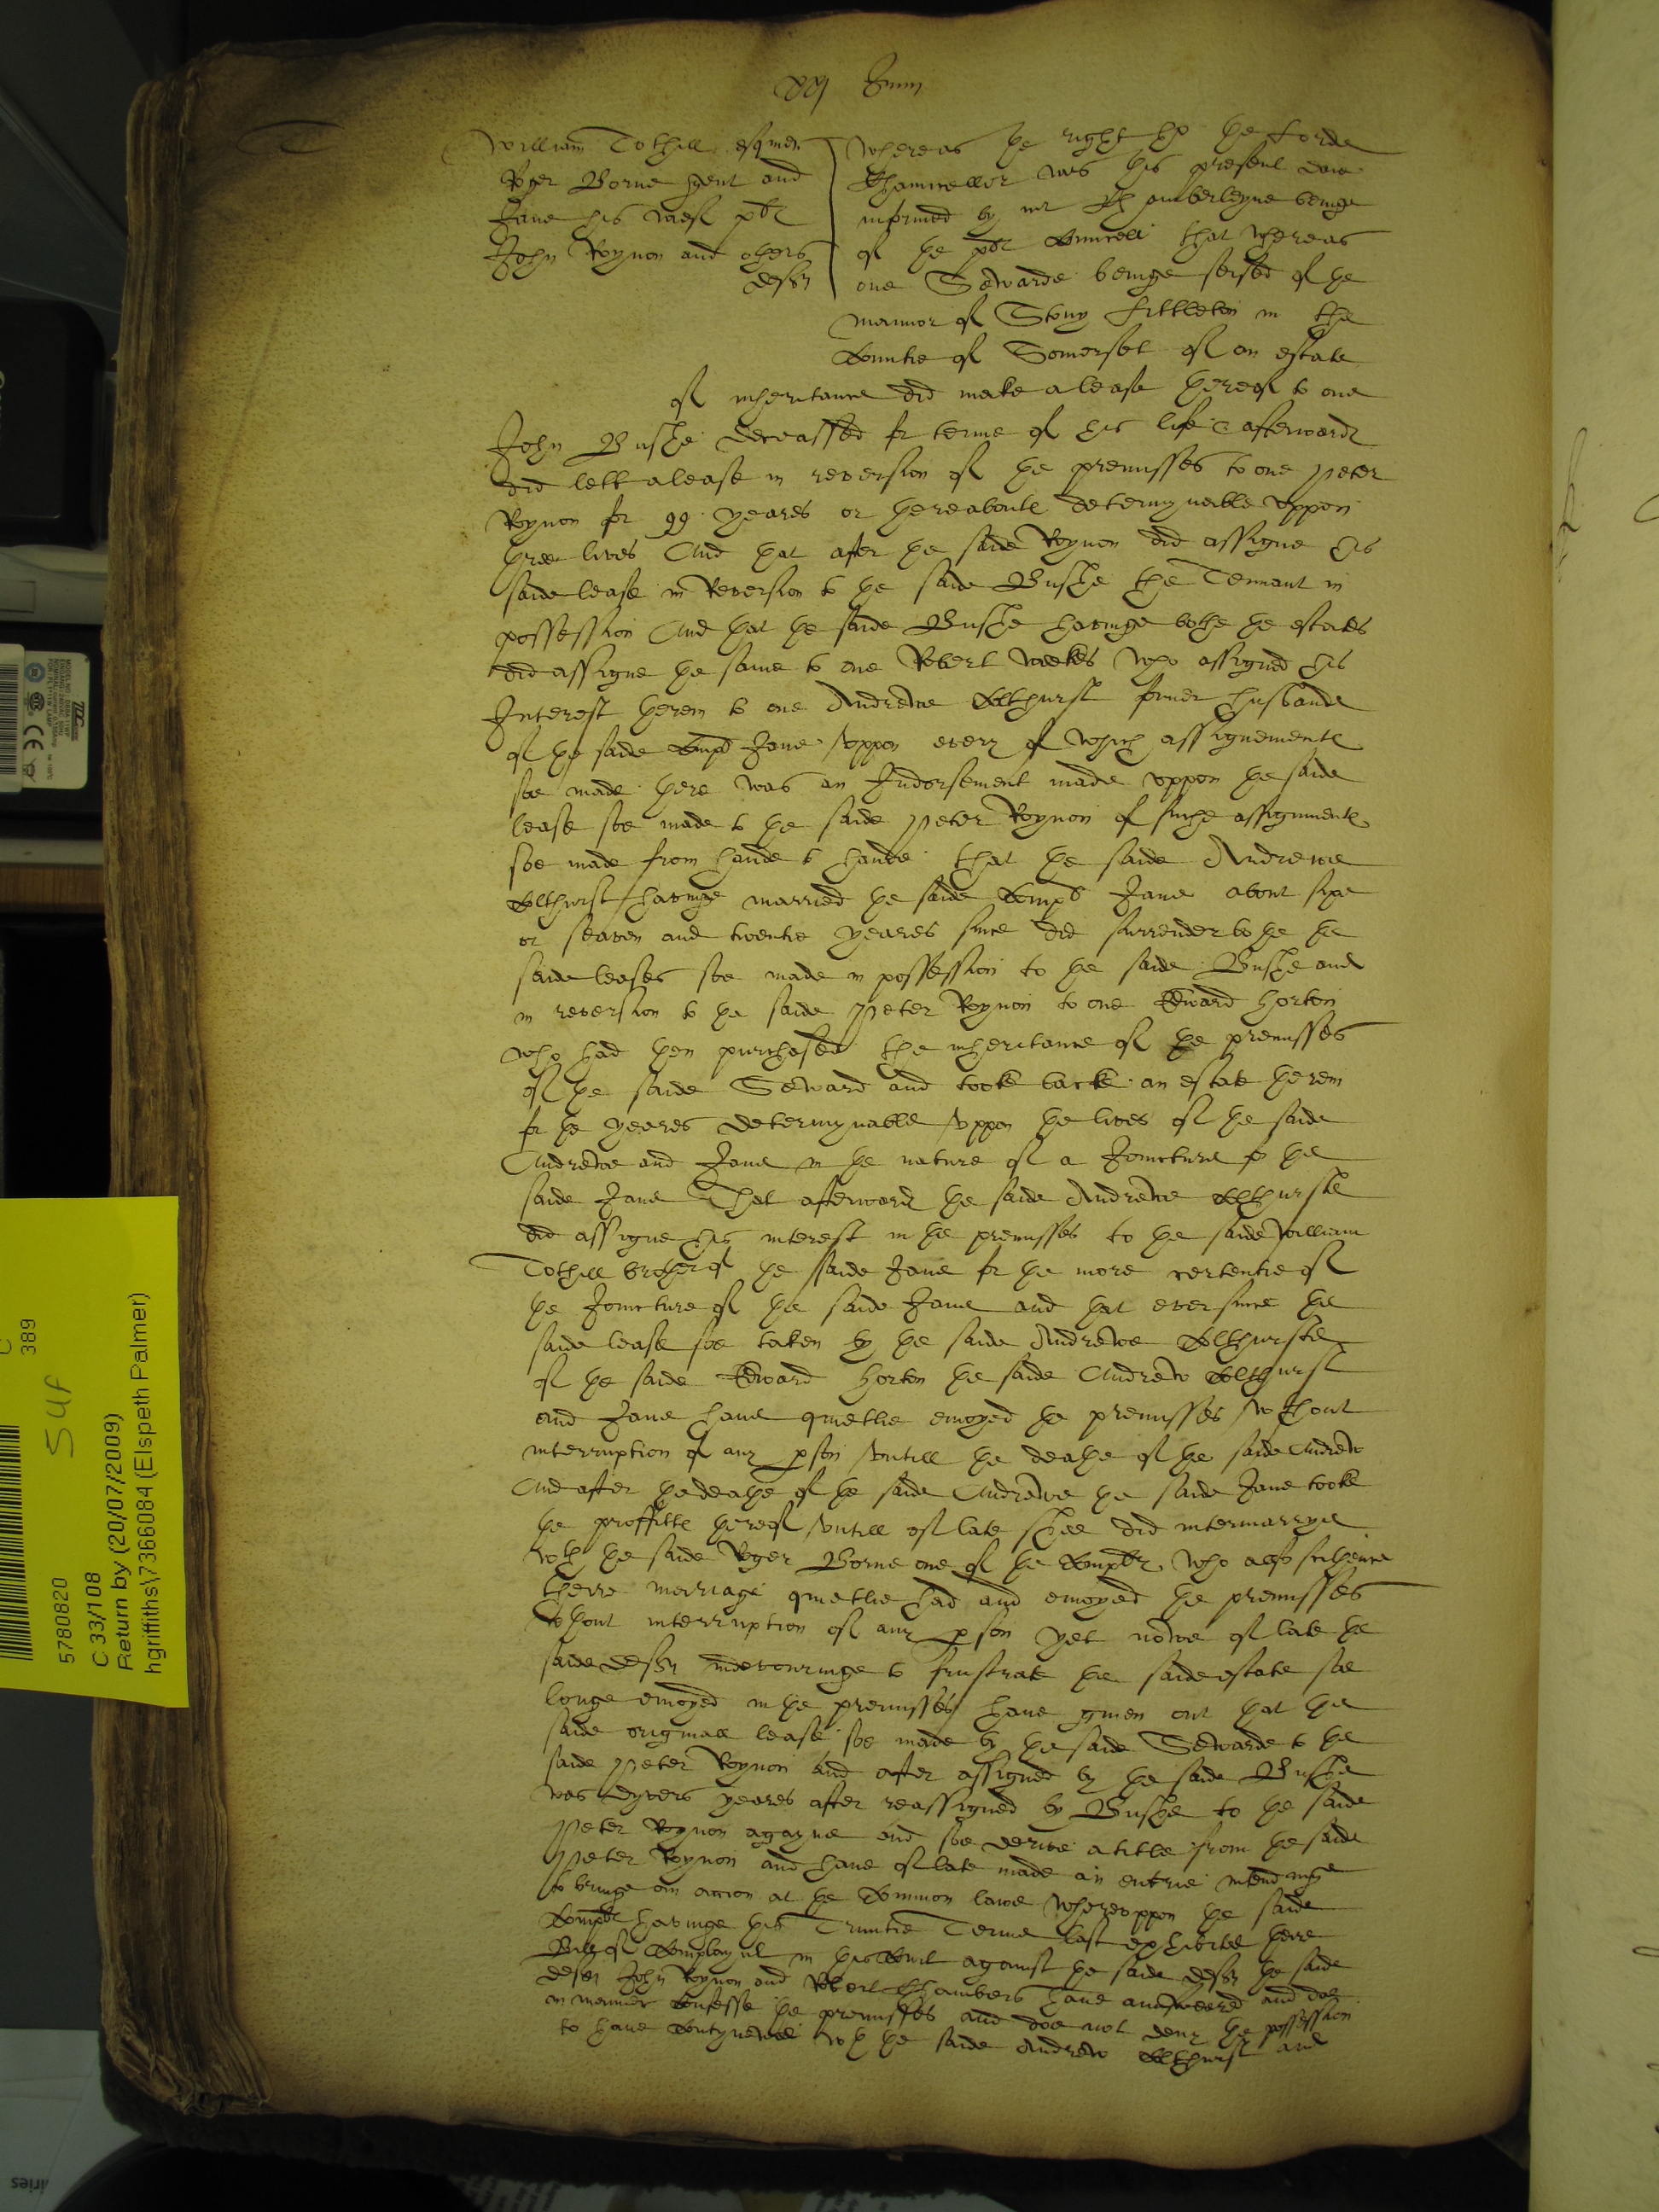 xxj Junij
T
William Tothill esquier
Roger Borne gent and
Jane his wief plt
John Roynon and others
defts
Whereas the right ho the Lorde
Chauncellor was this present daie
informed by mr Chamberleyne beinge
of the plt Councell that whereas
one Sewarde beinge seised of the
mannor of Stony Littleton in the
Countie of Somerset of an estate
of inheritance did make a lease thereof to one
John Bushe deceassed for terme of his life & afterwards
did lett a lease in reversion of the premisses to one Peter
Roynon for 99 yeares or thereaboute determynable uppon
three lives And that after the saide Roynon did assigne his
saide lease in Reversion to the saide Bushe the Tennant in
possession And that the saide Bushe havinge bothe the estates
did assigne the same to one Robert Weekes who assigned his
Interest therein to one Andrewe Colthurst former husbande
of the saide Compt Jane uppon every of which assignementes
soe made there was an Indorsement made uppon the saide
lease soe made to the saide Peter Roynon of suche assignmente
soe made from hande to hande that the saide Andrewe
Colthurst havinge married the saide Compt Jane about sixe
or seaven and twentie yeares since did surrender bothe the
saide leases soe made in possession to the saide Bushe and
in reversion to the saide Peter Roynon to one Edward Horton
who had then purchased the inheritance of the premisses
of the saide Seward and tooke backe an estate therein
for the yeares determynable uppon the lives of the saide
Andrewe and Jane in the nature of a Joincture for the
saide Jane That afterwards the saide Andrewe Colthurste
did assigne his interest in the premisses to the saide William
Tothill brother of the saide Jane for the more certentie of
the Joincture of the saide Jane and that ever since the
saide lease soe taken by the saide Andrewe Colthurste
of the saide Edward Horton the saide Andrew Colthurst
and Jane have quietlie enioyed the premisses without
interruption of any person untill the deathe of the saide Andrew
And after the deathe of the saide Andrewe the saide Jane tooke
the proffitts thereof untill of late shee did intermarrye
with the saide Roger Borne one of the Complts who also sithence
theire marriage quietlie had and enioyed the premisses
without interruption of any person yet nowe of late the
saide defts indevouringe to frustrate the saide estate soe
longe enioyed in the premisses have given out that the
saide originall lease soe made by the saide Sewarde to the
saide Peter Roynon and after assigned by the saide Bushe
was dyvers yeares after reassigned by Bushe to the saide
Peter Roynon agayne and soe derive a title from the saide
Peter Roynon and have of late made an entrie intendinge
to bringe an accion at the Common lawe whereuppon the saide
Complts havinge this Trinitie Terme last exhibited theire
Bill of Complaynt in this Court against the saide defts the saide
defts John Roynon and Robert Chambers have aunsweered and doe
in manner Confesse the premisses and doe not deny the possession
to have Contynewed with the saide Andrew Colthurst and
C
389
SUF
5780820
C 33/108
Return by (20/07/2009)
hgriffiths\7366084 (Elspeth Palmer)